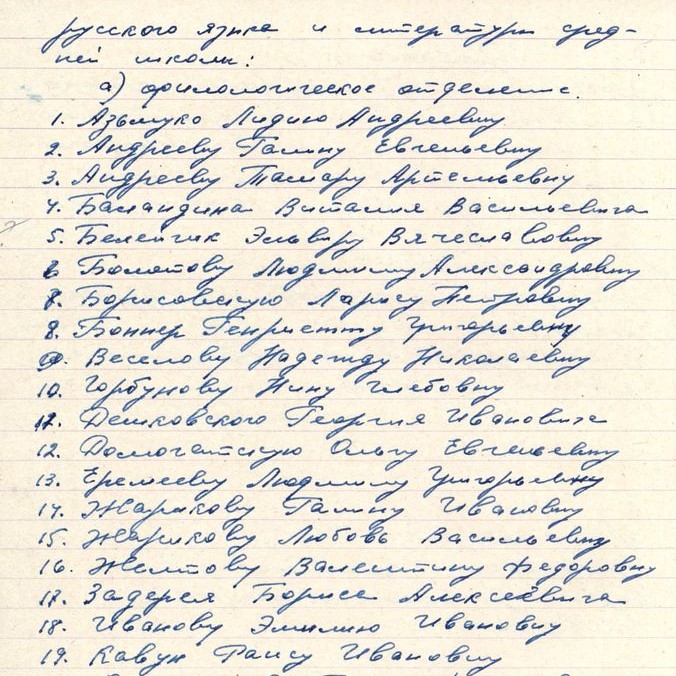 русского языка и литературы сред-
ней школы:
а) филологическое отделение.
1. Азьмуко Лидию Андреевну
2. Андрееву Галину Евгеньевну
3. Андрееву Тамару Артемьевну
4. Баландина Виталия Васильевича
5. Беленчик Эльвиру Вячеславовну
6 Болотову Людмилу Александровну
7. Борисовскую Ларису Петровну
8. Боннер Генриетту Григорьевну
9. Веселову Надежду Николаевну
10. Горбунову Нину Глебовну
11. Дешковского Георгия Ивановича
12. Домогатскую Ольгу Евгеньевну
13. Еремееву Людмилу Григорьевну
14. Жарикову Галину Ивановну
15. Жарикову Любовь Васильевну
16. Желтову Валентину Федоровну
17. Задерея Бориса Алексеевича
18. Иванову Эмилию Ивановну
19. Кавун Раису Ивановну